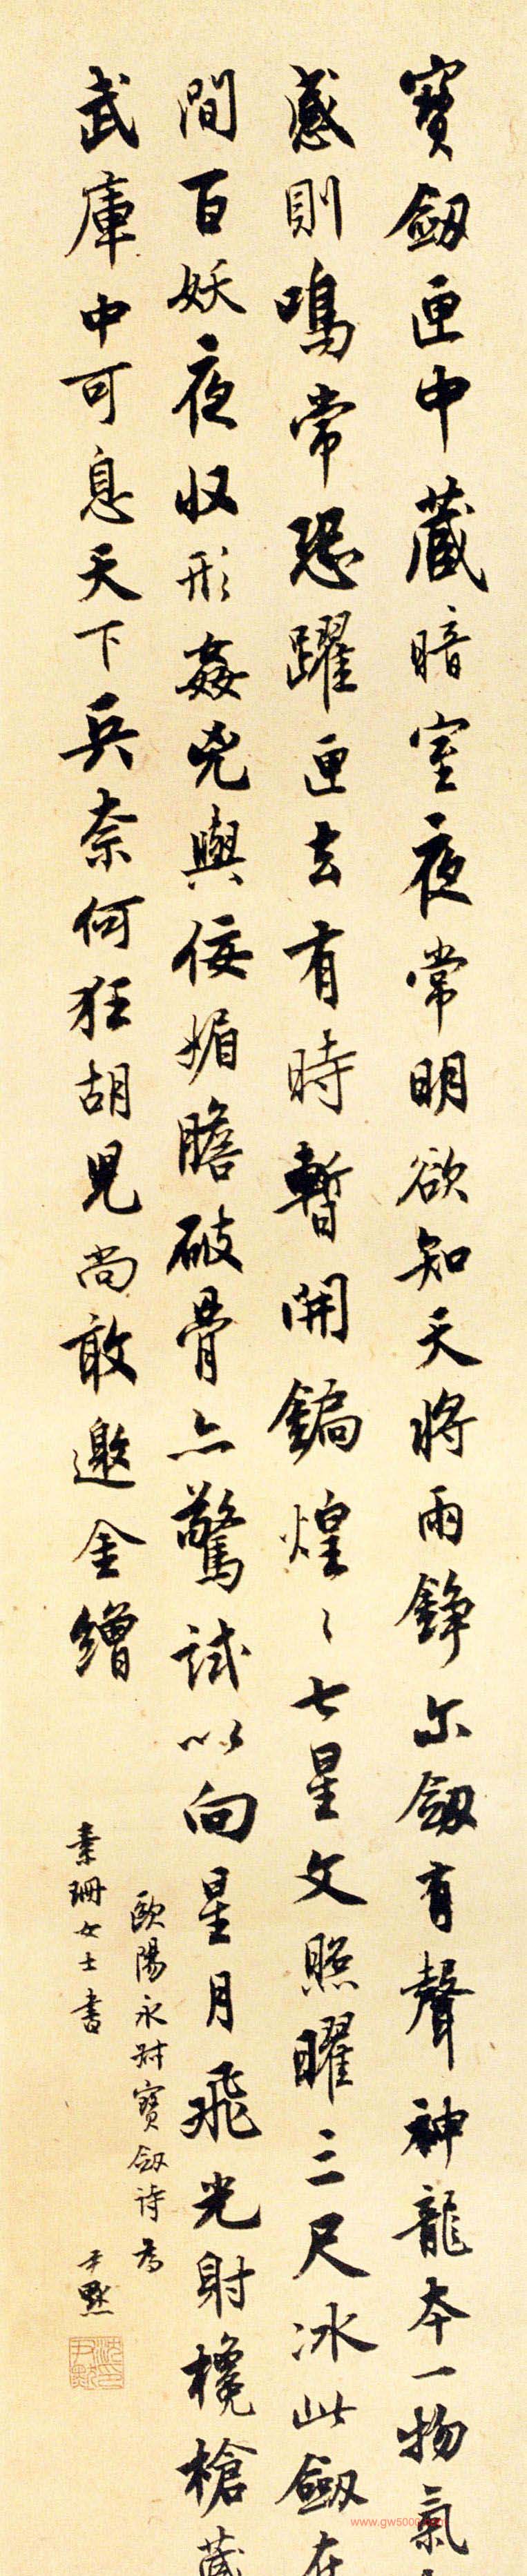 寶劔匣中藏暗室夜常明欲知天將雨錚尔劔有聲神龍本一物氣
感則鳴常恐躍匣去有時暫開鐍煌〻七星文照曜三尺冰此劔在
間百妖夜収形姦兇與佞媚膽破骨亦驚試以向星月飛光射欃槍藏
武庫中可息天下兵奈何狂胡兒尚敢邀金繒
歐陽永叔寶劔詩為
素珊女士書
尹默
沈尹默印
www.gw500